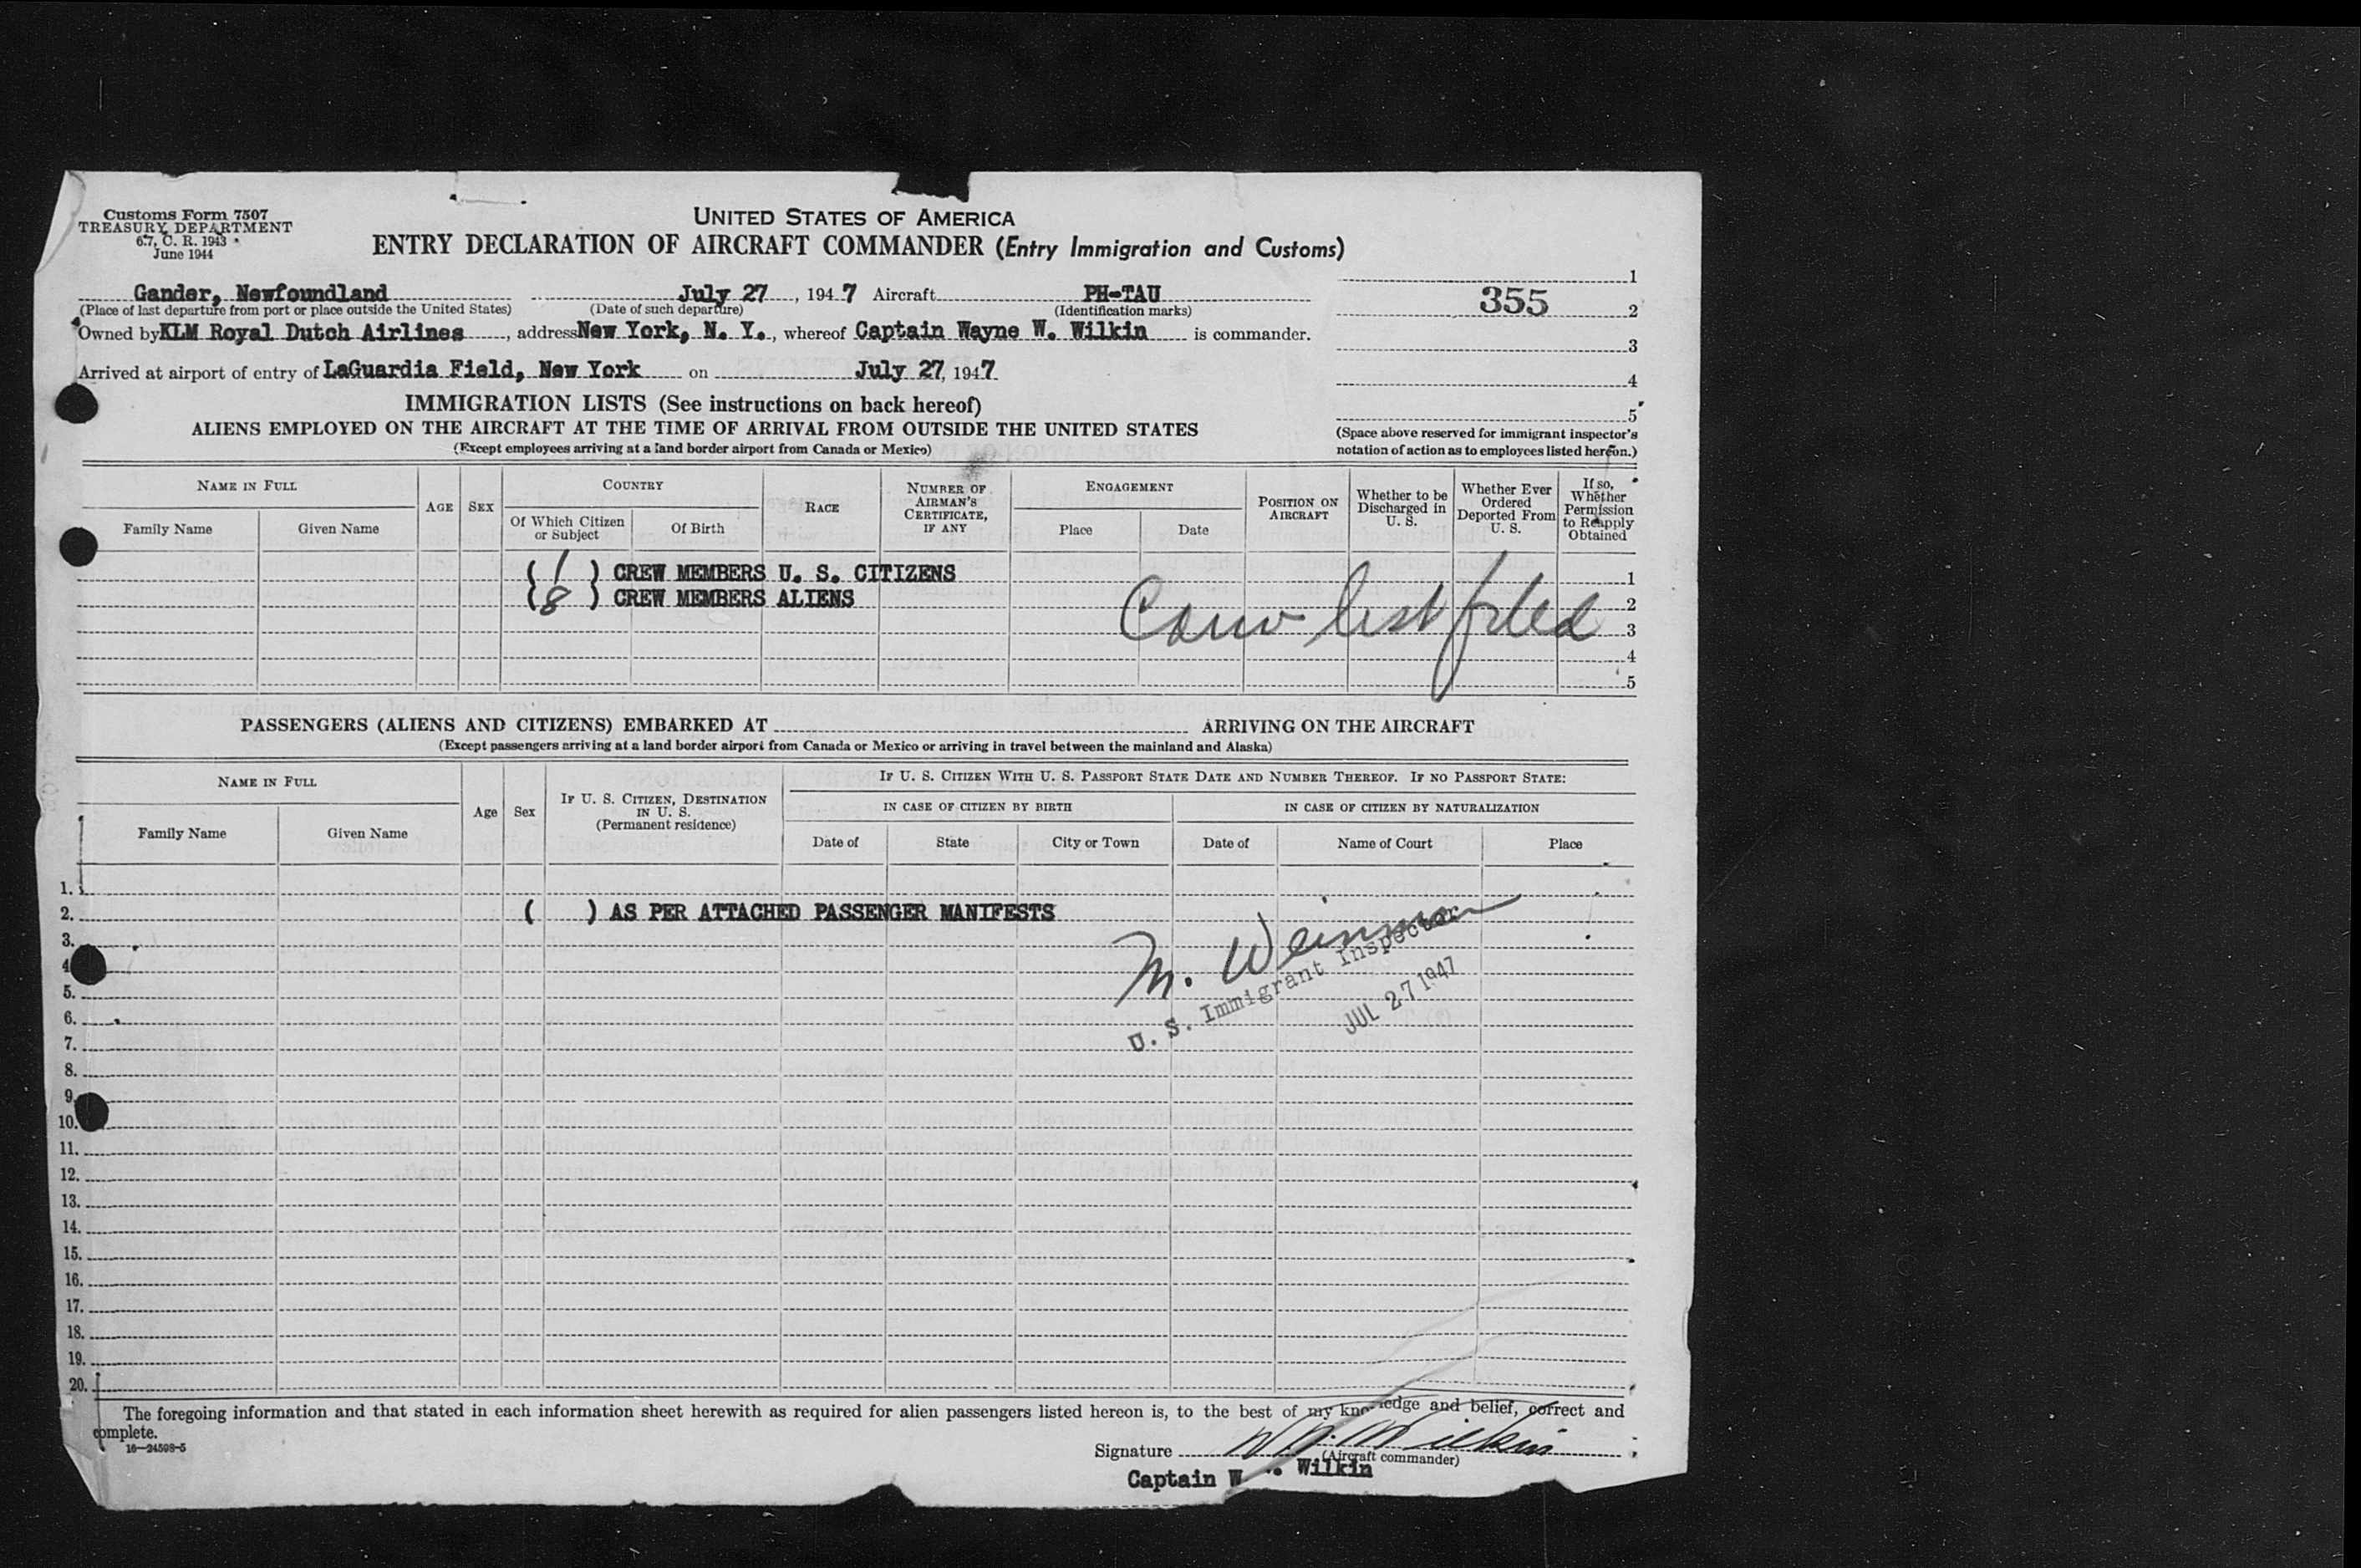 Customs Form 7507
TREASURY DEPARTMENT
6.7, C. R. 1943
June 1944
UNITED STATES OF AMERICA
ENTRY DECLARATION OF AIRCRAFT COMMANDER (Entry Immigration and Customs)
Gander, Newfoundland July 27, 1947 Aircraft PH-TAU
(Place of last departure from port or place outside the United States) (Date of such departure) (Identification marks)
Owned by KLM Royal Dutch Airlines, address New York, N. Y., whereof Captain Wayne W. Wilkin is commander.
Arrived at airport of entry of LaGuardia Field, New York on July 27, 1947
1
355
2
3
4
5
(Space above reserved for immigrant inspector's
notation of action as to employees listed hereon.)
IMMIGRATION LISTS (See instructions on back hereof)
ALIENS EMPLOYED ON THE AIRCRAFT AT THE TIME OF ARRIVAL FROM OUTSIDE THE UNITED STATES
(Except employees arriving at a land border airport from Canada or Mexico)
NAME IN FULL
Family Name Given Name
AGE
SEX
COUNTRY
Of Which Citizen
or Subject
Of Birth
RACE
NUMBER OF
AIRMAN'S
CERTIFICATE,
IF ANY
ENGAGEMENT
Place Date
POSITION ON
AIRCRAFT
Whether to be
Discharged in
U. S.
Whether Ever
Ordered
Deported From
U. S.
If so,
Whether
Permission
to Reapply
Obtained
( 1 ) CREW MEMBERS U. S. CITIZENS 1
( 8 ) CREW MEMBERS ALIENS 2
list filed 3
4
5
PASSENGERS (ALIENS AND CITIZENS) EMBARKED AT ARRIVING ON THE AIRCRAFT
(Except passengers arriving at a land border airport from Canada or Mexico or arriving in travel between the mainland and Alaska)
NAME IN FULL
Family Name Given Name
Age
Sex
IF U. S. CITIZEN, DESTINATION
IN U. S.
(Permanent residence)
IF U. S. CITIZEN WITH U. S. PASSPORT STATE DATE AND NUMBER THEREOF. IF NO PASSPORT STATE:
IN CASE OF CITIZEN BY BIRTH
IN CASE OF CITIZEN BY NATURALIZATION
Date of State City or Town Date of Name of Court Place
1.
2. ( ) AS PER ATTACHED PASSENGER MANIFESTS
3.
M.
U. S. Immigrant Inspector
JUL 27 1947
4
5.
6.
7.
8.
9.
10.
11.
12.
13.
14.
15.
16.
17.
18.
19.
20.
The foregoing information and that stated in each information sheet herewith as required for alien passengers listed hereon is, to the best of my and belief, correct and
complete.
16—24598-5
Signature W. W. Wilkin
(Aircraft commander)
Captain W . Wilkin